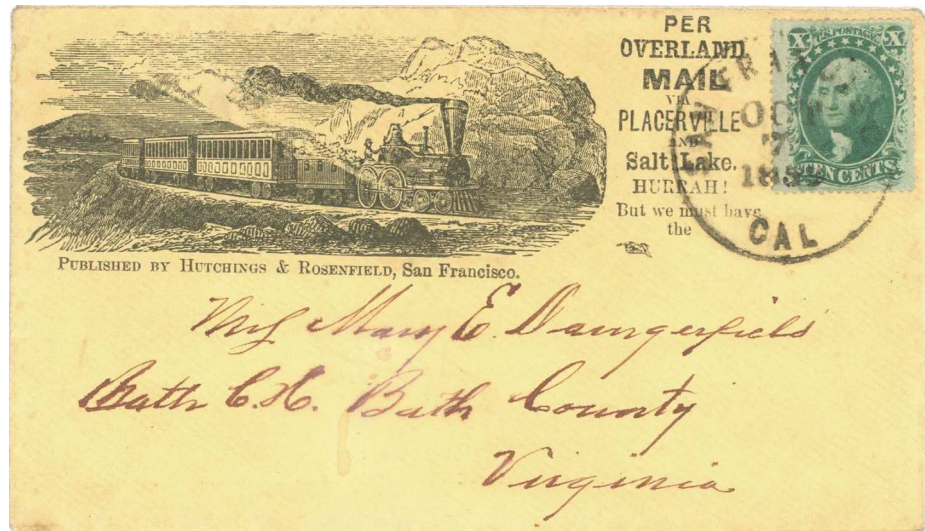 PER
OVERLAND
MAIL
VIA
PLACERVILLE
AND
Salt Lake.
HURRAH!
But we must have
the
U.S. POSTAGE
X X
TEN CENTS
OCT
7
CAL
PUBLISHED BY HUTCHINGS & ROSENFIELD, San Francisco.
Mrs Mary E. Daingerfield
Bath C.H. Bath County
Virginia